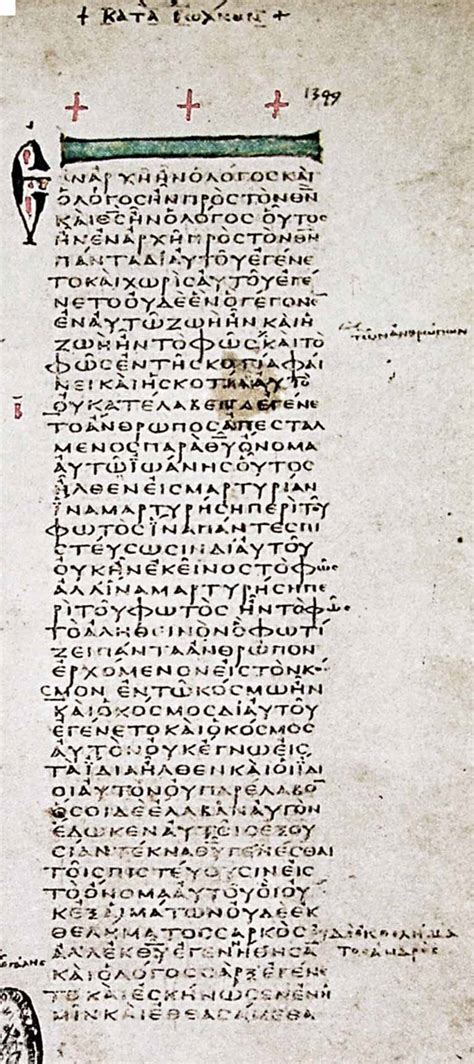 + ΚΑΤΑ ΙΩΑΝΗΝ +
1349
ΕΝΑΡΧΗΗΝΟΛΟΓΟΣΚΑΙ
ΟΛΟΓΟΣΗΝΠΡΟΣΤΟΝΘΝ
ΚΑΙΘΣΗΝΟΛΟΓΟΣ ΟΥΤΟΣ
ΗΝΕΝΑΡΧΗΠΡΟΣΤΟΝΘΝ
ΠΑΝΤΑΔΙΑΥΤΟΥΕΓΕΝΕ
ΤΟΚΑΙΧΩΡΙΣΑΥΤΟΥΕΓΕ
ΝΕΤΟΟΥΔΕΕΝΟΓΕΓΟΝΕ
ΕΝΑΥΤΩΖΩΗΗΝΚΑΙΗ
ΖΩΗΗΝΤΟΦΩΣ ΚΑΙΤΟ
ΤΩΝΑΝΘΡΩΠΩΝ
ΦΩΣΕΝΤΗΣΚΟΤΙΑΦΑΙ
ΝΕΙΚΑΙΗΣΚΟΤΙΑΑΥΤΟ
ΟΥΚΑΤΕΛΑΒΕΝΕΓΕΝΕ
ΤΟΑΝΘΡΩΠΟΣΑΠΕΣΤΑΛ
ΜΕΝΟΣΠΑΡΑΘΥΟΝΟΜΑ
ΑΥΤΩΙΩΑΝΗΣΟΥΤΟΣ
ΗΛΘΕΝΕΙΣΜΑΡΤΥΡΙΑΝ
ΙΝΑΜΑΡΤΥΡΗΣΗΠΕΡΙΤΟΥ
ΦΩΤΟΣΙΝΑΠΑΝΤΕΣΠΙ
ΣΤΕΥΣΩΣΙΝΔΙΑΥΤΟΥ
ΟΥΚΗΝΕΚΕΙΝΟΣΤΟΦΩΣ
ΑΛΛΙΝΑΜΑΡΤΥΡΗΣΗΠΕ
ΡΙΤΟΥΦΩΤΟΣ ΗΝΤΟΦΩΣ
ΤΟΑΛΗΘΕΙΝΟΝΟΦΩΤΙ
ΖΕΙΠΑΝΤΑΑΝΘΡΩΠΟΝ
ΕΡΧΟΜΕΝΟΝΕΙΣΤΟΝΚΟ
ΣΜΟΝ ΕΝΤΩΚΟΣΜΩΗΝ
ΚΑΙΟΚΟΣΜΟΣΔΙΑΥΤΟΥ
ΕΓΕΝΕΤΟΚΑΙΟΚΟΣΜΟΣ
ΑΥΤΟΝΟΥΚΕΓΝΩΕΙΣ
ΤΑΙΔΙΑΗΛΘΕΝΚΑΙΟΙΙΔΙ
ΟΙΑΥΤΟΝΟΥΠΑΡΕΛΑΒΟ
ΟΣΟΙΔΕΕΛΑΒΑΝΑΥΤΟΝ
ΕΔΩΚΕΝΑΥΤΟΙΣΕΞΟΥ
ΣΙΑΝΤΕΚΝΑΘΥΓΕΝΕΣΘΑΙ
ΤΟΙΣΠΙΣΤΕΥΟΥΣΙΝΕΙΣ
ΤΟΟΝΟΜΑΑΥΤΟΥΟΙΟΥ
ΚΕΞΑΙΜΑΤΩΝΟΥΔΕΕΚ
ΘΕΛΗΜΑΤΟΣΣΑΡΚΟΣ
ΟΥΔΕΕΚΘΕΛΗΜΑ
ΤΟΣΑΝΔΡΟΣ
ΑΛΛΕΚΘΥΕΓΕΝΗΘΗΣΑ
ΚΑΙΟΛΟΓΟΣΣΑΡΞΕΓΕΝΕ
ΤΟ ΚΑΙΕΣΚΗΝΩΣΕΝΕΝΗ
ΜΙΝΚΑΙΕΘΕΑΣΑΜΕΘΑ